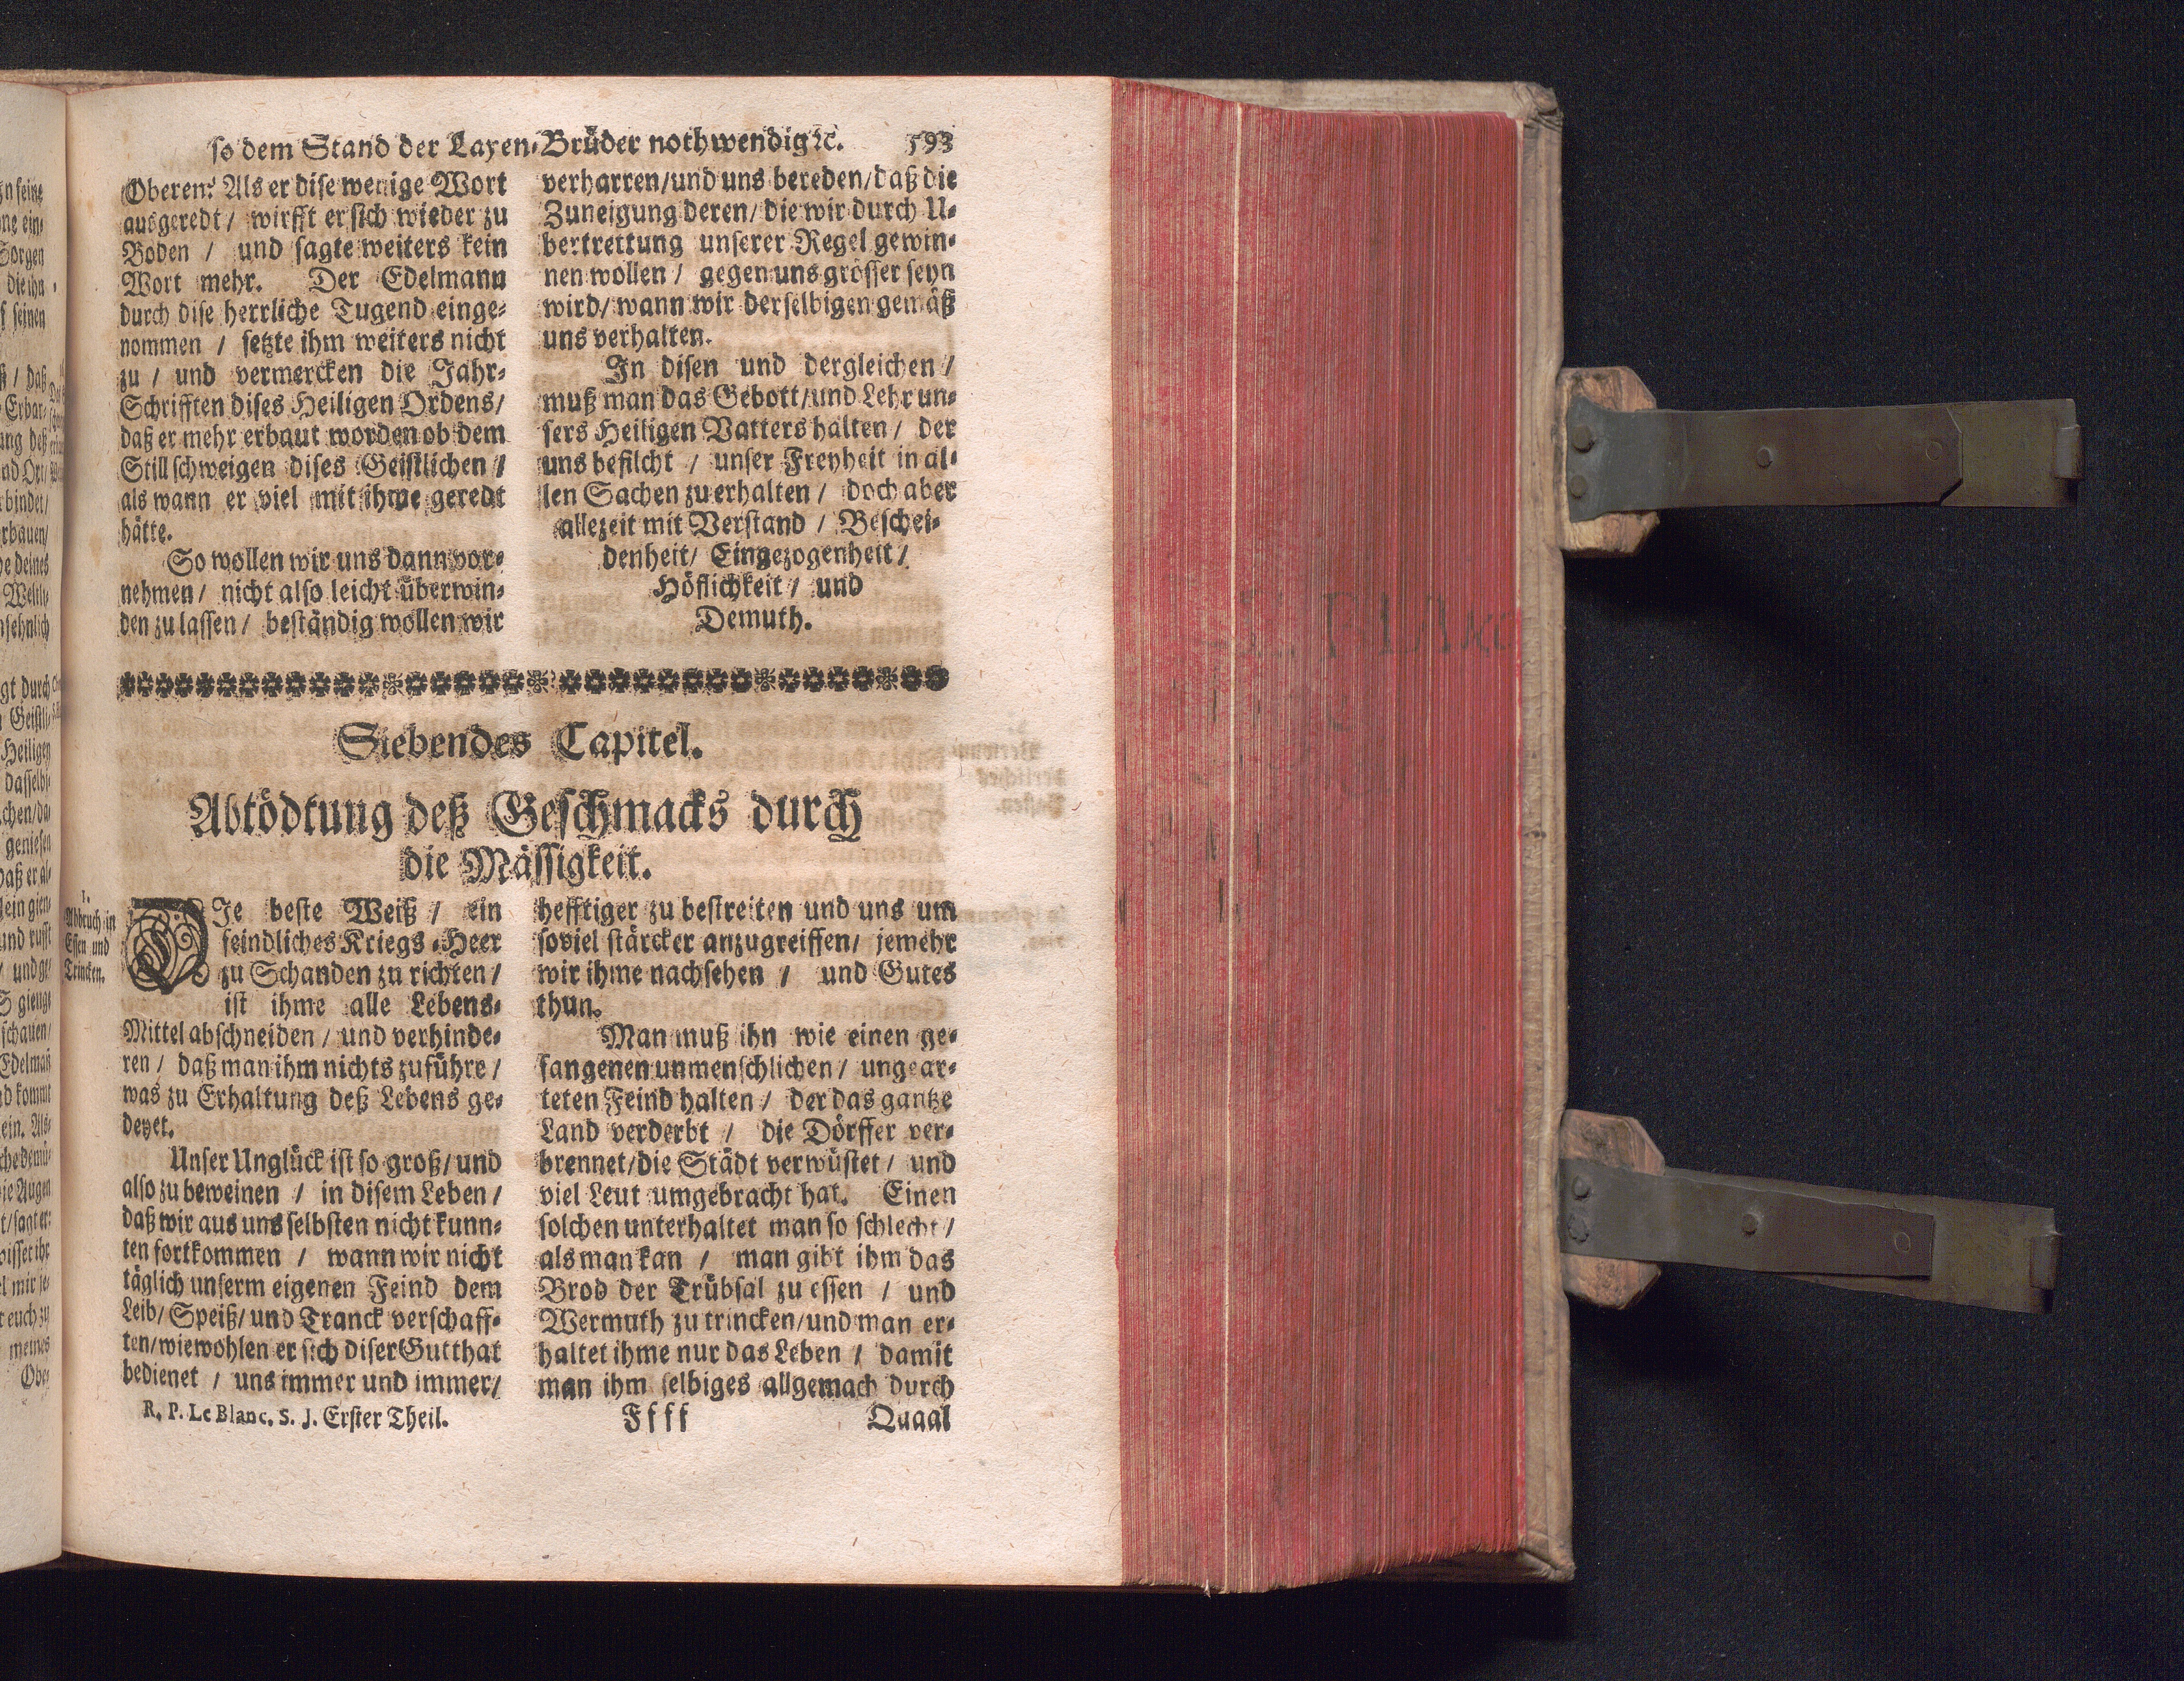 so dem Stand der Layen-Brüder nothwendig ꝛc. 593
Oberen? Als er dise wenige Wort
ausgeredt / wirfft er sich wieder zu
Boden / und sagte weiters kein
Wort mehr. Der Edelmann
durch dise herrliche Tugend einge-
nommen / setzte ihm weiters nicht
zu / und vermercken die Jahr-
Schrifften dises Heiligen Ordens /
daß er mehr erbaut worden ob dem
Stillschweigen dises Geistlichen /
als wann er viel mit ihme geredt
hätte.
So wollen wir uns dann vor-
nehmen / nicht also leicht überwin-
den zu lassen / beständig wollen wir
verharren / und uns bereden / daß die
Zuneigung deren / die wir durch U-
bertrettung unserer Regel gewin-
nen wollen / gegen uns grösser seyn
wird / wann wir derselbigen gemäß
uns verhalten.
In disen und dergleichen /
muß man das Gebott / und Lehr un-
sers Heiligen Vatters halten / der
uns befilcht / unser Freyheit in al-
len Sachen zu erhalten / doch aber
allezeit mit Verstand / Beschei-
denheit / Eingezogenheit /
Höflichkeit / und
Demuth.
Siebendes Capitel.
Abtödtung deß Geschmacks durch
die Mässigkeit.
1.
Abbruch in
Essen und
Trincken.
DIe beste Weiß / ein
feindliches Kriegs-Heer
zu Schanden zu richten /
ist ihme alle Lebens-
Mittel abschneiden / und verhinde-
ren / daß man ihm nichts zuführe /
was zu Erhaltung deß Lebens ge-
deyet.
Unser Unglück ist so groß / und
also zu beweinen / in disem Leben /
daß wir aus uns selbsten nicht kunn-
ten fortkommen / wann wir nicht
täglich unserm eigenen Feind dem
Leib / Speiß / und Tranck verschaff-
ten / wiewohlen er sich diser Gutthat
bedienet / uns immer und immer /
hefftiger zu bestreiten und uns um
soviel stärcker anzugreiffen / jemehr
wir ihme nachsehen / und Gutes
thun.
Man muß ihn wie einen ge-
fangenen unmenschlichen / ungear-
teten Feind halten / der das gantze
Land verderbt / die Dörffer ver-
brennet / die Städt verwüstet / und
viel Leut umgebracht hat. Einen
solchen unterhaltet man so schlecht /
als man kan / man gibt ihm das
Brod der Trübsal zu essen / und
Wermuth zu trincken / und man er-
haltet ihme nur das Leben / damit
man ihm selbiges allgemach durch
R. P. Le Blanc. S. J. Erster Theil. Ffff Quaal